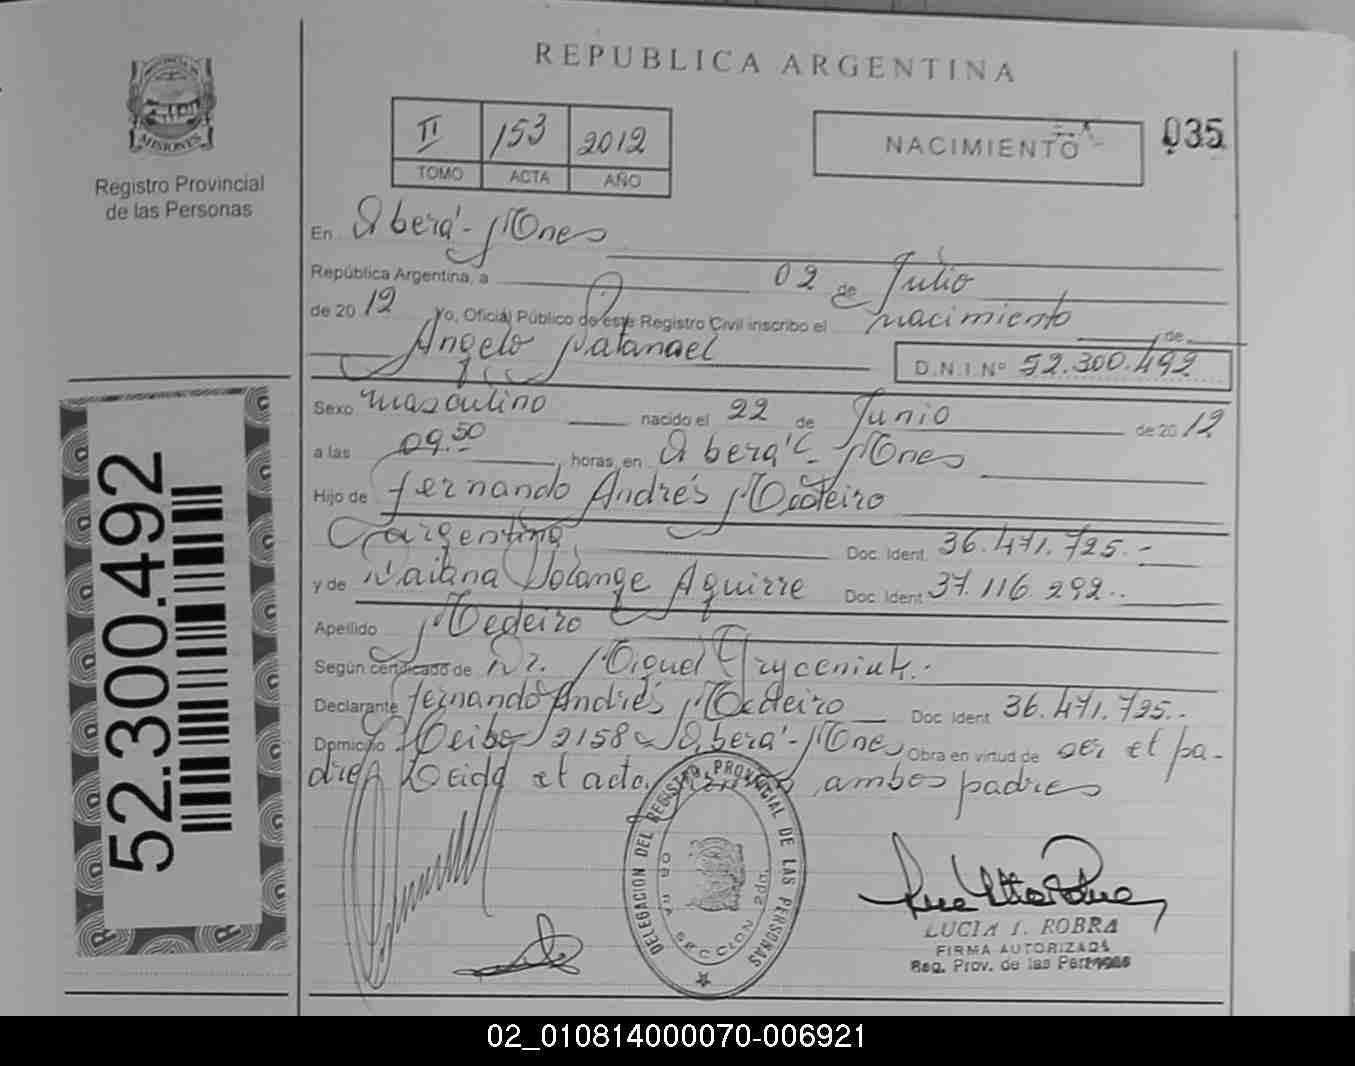 REPUBLICA ARGENTINA
MISIONES
Registro Provincial
de las Personas
II 153 2012
TOMO ACTA AÑO
NACIMIENTO
035
En Oberá - Mnes
República Argentina, a 02 de Julio
de 2012 Yo, Oficial Público de este Registro Civil inscribo el nacimiento de
Angelo Natanael D.N.I. Nº 52.300.492
Sexo masculino nacido el 22 de Junio de 2012
a las 09.50 horas, en Oberá - Mnes
Hijo de Fernando Andrés Medeiro
argentino Doc. Ident. 36.471.725.-
y de Daiana Solange Aguirre Doc. Ident 37.116.292.-
Apellido Medeiro
Según certificado de Dr. Miguel Hryceniuk.-
Declarante Fernando Andrés Medeiro Doc. Ident 36.471.725.-
Domicilio Ceibo 2158 Oberá - Mnes Obra en virtud de ser el pa-
dre Leída el acta, firman ambos padres
52.300.492
DELEGACION DEL REGISTRO PROVINCIAL DE LAS PERSONAS
OBERA
SECCION 2da.
LUCIA I. ROBRA
FIRMA AUTORIZADA
Reg. Prov. de las Personas
02_010814000070-006921